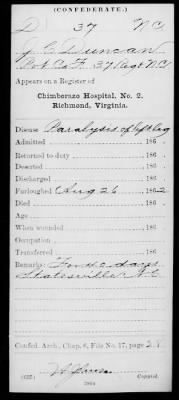 (CONFEDERATE.)
D 37 N.C.
J. C. Duncan
Pvt Co F. 37 Regt N.C.
Appears on a Register of
Chimborazo Hospital, No. 2,
Richmond, Virginia.
Disease Paralysis of left leg
Admitted 186 .
Returned to duty 186 .
Deserted 186 .
Discharged 186 .
Furloughed Aug 26 186 2
Died 186 .
Age
When wounded 186 .
Occupation
Transferred 186 .
Remarks: Forty days
Statesville N.C.
Confed. Arch., Chap. 6, File No. 17, page 28
(635) Copyist.